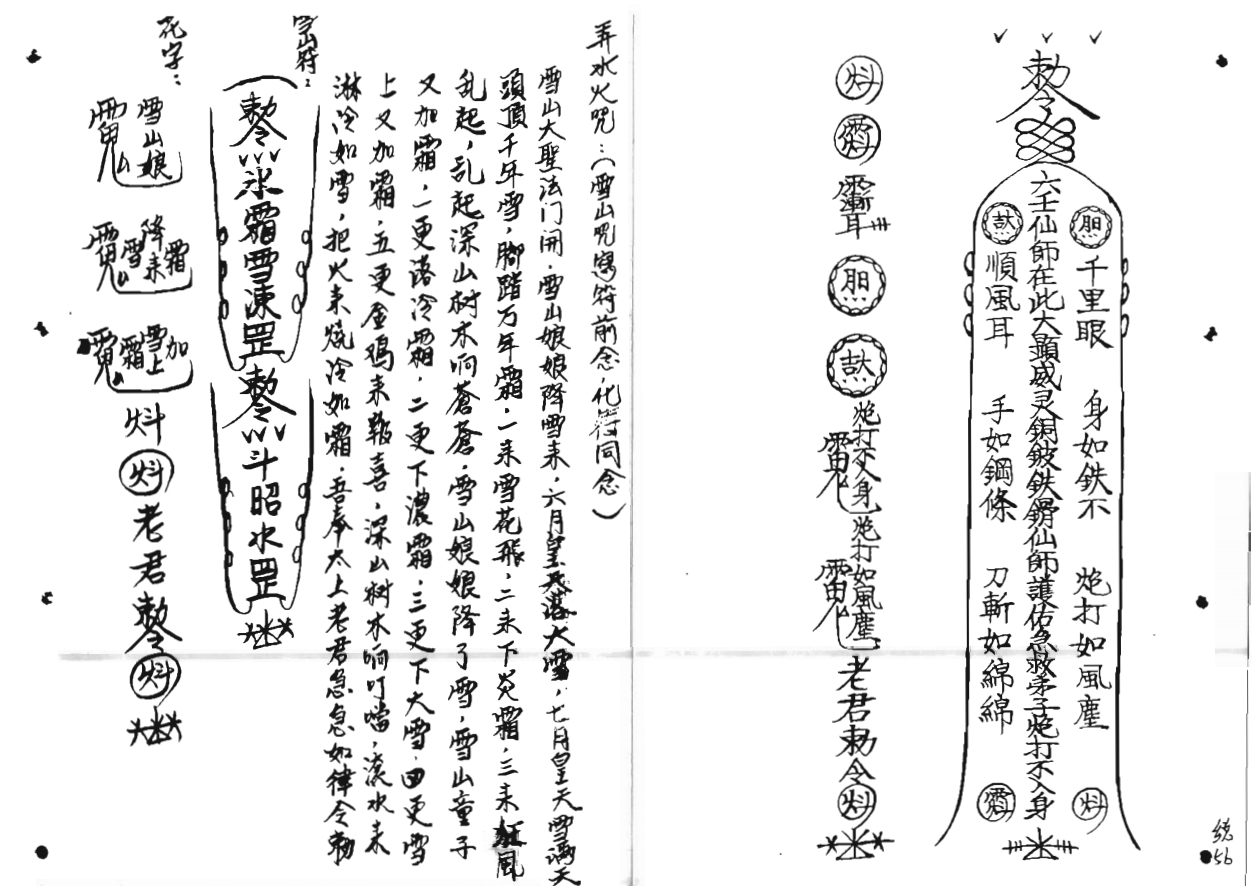 勅令
六壬仙師在此大顯威灵銅鈹鉄
仙師護佑急救弟子炮打不入身
千里眼
身如鉄不
炮打如風塵
順風耳
手如鋼條
刀斬如綿綿
炮打不入身
炮打如風塵
老君勅令
统56
弄水火咒：（雪山咒寫符前念化符同念）
雪山大聖法门開，雪山娘娘降雪来，六月皇天落大雪，七月皇天雪满天
頭頂千年雪，脚踏万年霜，一来雪花飛，二来下炎霜，三来狂風
乱起，乱起深山树木响蒼蒼，雪山娘娘降了雪，雪山童子
又加霜，一更落冷霜，二更下濃霜，三更下大雪，四更雪
上又加霜，五更金鸡来報喜，深山树木响叮噹，滚水来
淋冷如雪，把火来燒冷如霜，吾奉太上老君急急如律令勅
雪山符：
勅令
氷霜雪凍罡
勅令
斗昭水罡
花字：
雪山娘
降雪来霜
雪上加霜
老君勅令